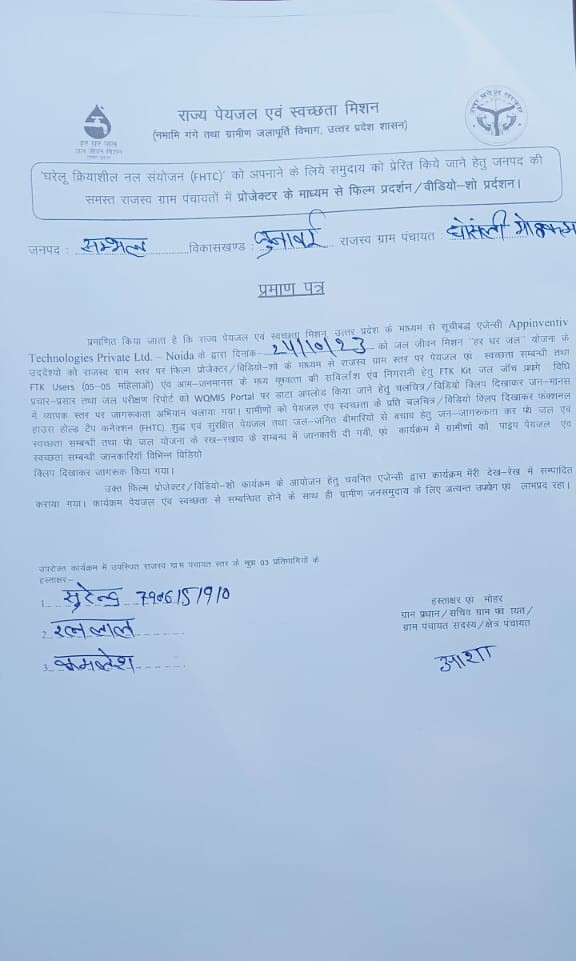 हर घर जल
जल जीवन मिशन
राज्य पेयजल एवं स्वच्छता मिशन
(नमामि गंगे तथा ग्रामीण जलापूर्ति विभाग, उत्तर प्रदेश शासन)
उत्तर प्रदेश सरकार
'घरेलू क्रियाशील नल संयोजन (FHTC)' को अपनाने के लिये समुदाय को प्रेरित किये जाने हेतु जनपद की
समस्त राजस्व ग्राम पंचायतों में प्रोजेक्टर के माध्यम से फिल्म प्रदर्शन/वीडियो-शो प्रर्दशन।
जनपद : सम्भल विकासखण्ड : जुनाबई राजस्व ग्राम पंचायत :
प्रमाण पत्र
प्रमाणित किया जाता है कि राज्य पेयजल एवं स्वच्छता मिशन, उत्तर प्रदेश के माध्यम से सूचीबद्ध एजेन्सी Appinventiv
Technologies Private Ltd. – Noida के द्वारा दिनांक 24/10/23 को जल जीवन मिशन "हर घर जल" योजना के
उददेश्यो को राजस्व ग्राम स्तर पर फिल्म प्रोजेक्टर/विडियो-शो के माध्यम से राजस्व ग्राम स्तर पर पेयजल एवं स्वच्छता सम्बन्धी तथा
FTK Users (05-05 महिलाओं) एवं आम-जनमानस के मध्य की एवं निगरानी हेतु FTK Kit जल जाँच विधि
प्रचार-प्रसार तथा जल परीक्षण रिपोर्ट को WQMIS Portal पर डाटा अपलोड किया जाने हेतु चलचित्र/विडियो क्लिप दिखाकर जन-मानस
में व्यापक स्तर पर जागरूकता अभियान चलाया गया। ग्रामीणों को पेयजल एवं स्वच्छता के प्रति चलचित्र/विडियो क्लिप दिखाकर फंक्शनल
हाउस होल्ड टैप कनेक्शन (FHTC), शुद्ध एवं सुरक्षित पेयजल तथा जल-जनित बीमारियों से बचाव हेतु जन-जागरूकता कर जल एवं
स्वच्छता सम्बन्धी तथा जल योजना के रख-रखाव के सम्बन्ध में जानकारी दी गयी, एवं कार्यक्रम में ग्रामीणों को पाइप पेयजल एवं
स्वच्छता सम्बन्धी जानकारियाँ विभिन्न विडियो
क्लिप दिखाकर जागरूक किया गया।
उक्त फिल्म प्रोजेक्टर/विडियो-शो कार्यक्रम के आयोजन हेतु चयनित एजेन्सी द्वारा कार्यक्रम मेरी देख-रेख में सम्पादित
कराया गया। कार्यक्रम पेयजल एवं स्वच्छता से सम्बन्धित होने के साथ ही ग्रामीण जनसमुदाय के लिए अत्यन्त एवं लाभप्रद रहा।
उपरोक्त कार्यक्रम में उपस्थित राजस्व ग्राम पंचायत स्तर के मुख्य 03 प्रतिभागियों के
हस्ताक्षर-
1. सुरेन्द्र
2. रतन लाल
3. कमलेश
हस्ताक्षर एवं मोहर
ग्राम प्रधान/सचिव ग्राम पंचायत/
ग्राम पंचायत सदस्य/क्षेत्र पंचायत
आशा